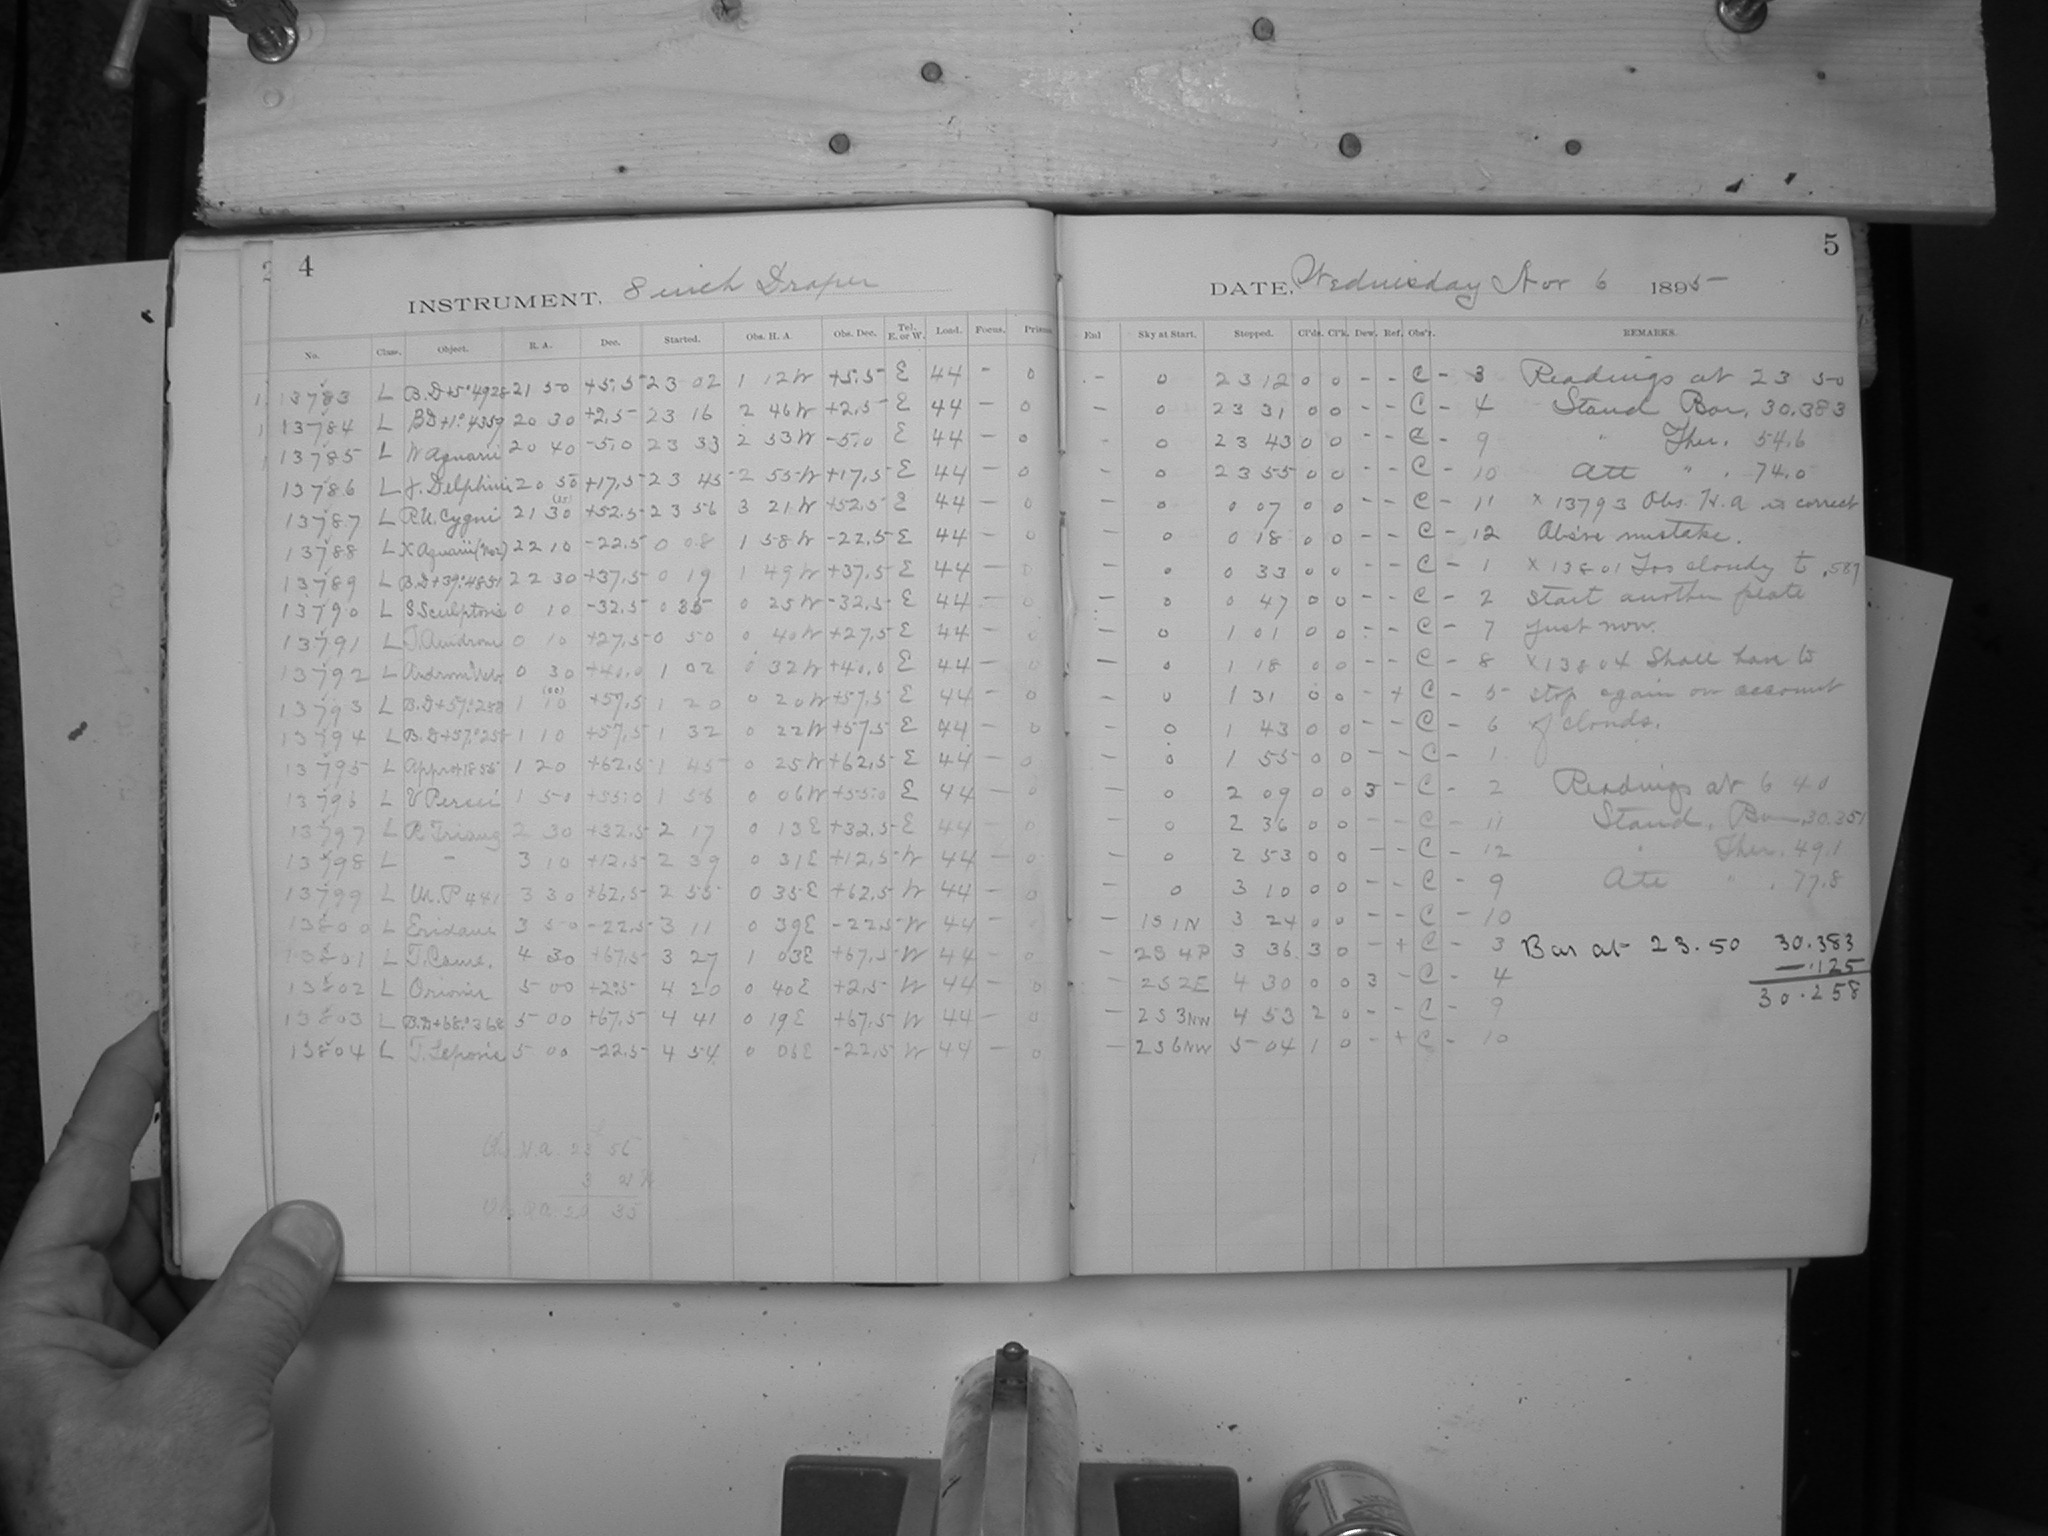 4
INSTRUMENT, 8 inch Draper
No. Class. Object. R. A. Dec. Started. Obs. H. A. Obs. Dec. Tel. E. or W. Load. Focus. Prism
13783 L B.D+5°4928 21 50 +5.5 23 02 1 12W +5.5 E 44 - 0
13784 L BD+1°4359 20 30 +2.5 23 16 2 46W +2.5 E 44 - 0
13785 L W Aquarii 20 40 -5.0 23 33 2 53W -5.0 E 44 - 0
13786 L J. Delphini 20 50 +17.5 23 45 2 55W +17.5 E 44 - 0
13787 L R.U. Cygni 21 30 +52.5 23 56 3 21W +52.5 E 44 - 0
13788 L X Aquarii 22 10 -22.5 0 08 1 58W -22.5 E 44 - 0
13789 L B.D+39°4851 22 30 +37.5 0 19 1 49W +37.5 E 44 - 0
13790 L S Sculptoris 0 10 -32.5 0 35 0 25W -32.5 E 44 - 0
13791 L T. Androm 0 10 +27.5 0 50 0 40W +27.5 E 44 - 0
13792 L Androm Neb. 0 30 +40.0 1 02 0 32W +40.0 E 44 - 0
13793 L B.D+57°258 1 10 (00) +57.5 1 20 0 20W +57.5 E 44 - 0
13794 L B.D+57°258 1 10 +57.5 1 32 0 22W +57.5 E 44 - 0
13795 L 1 20 +62.5 1 45 0 25W +62.5 E 44 - 0
13796 L V Persei 1 50 +55.0 1 56 0 06W +55.0 E 44 - 0
13797 L R. Triang 2 30 +32.5 2 17 0 13E +32.5 E 44 - 0
13798 L - 3 10 +12.5 2 39 0 31E +12.5 W 44 - 0
13799 L M.P 441 3 30 +62.5 2 55 0 35E +62.5 W 44 - 0
13800 L Eridani 3 50 -22.5 3 11 0 39E -22.5 W 44 -
13801 L T. Came. 4 30 +67.5 3 27 1 03E +67.5 W 44 - 0
13802 L Orionis 5 00 +2.5 4 20 0 40E +2.5 W 44 - 0
13803 L B.D+68°368 5 00 +67.5 4 41 0 19E +67.5 W 44 - 0
13804 L T. Leporis 5 00 -22.5 4 54 0 06E -22.5 W 44 - 0
Obs. H.A. 23 56
3 21 W
35
5
DATE, Wednesday Nov 6 1895
Enl Sky at Start. Stopped. Cl'ds. Cl'k. Dew. Ref. Obs'r. REMARKS.
- 0 23 12 0 0 - - C - 3 Readings at 23 50
- 0 23 31 0 0 - - C - 4 Stand Bar. 30.383
- 0 23 43 0 0 - - C - 9 " Ther. 54.6
- 0 23 55 0 0 - - C - 10 Att " . 74.0
- 0 0 07 0 0 - - C - 11 x 13793 Obs. H.A is correct
- 0 0 18 0 0 - - C - 12 Above mistake.
- 0 0 33 0 0 - - C - 1 x 13801 Too cloudy to
- 0 0 47 0 0 - - C - 2 start another plate
- 0 1 01 0 0 - - C - 7 just now.
- 0 1 18 0 0 - - C - 8 x 13804 Shall have to
- 0 1 31 0 0 - + C - 5 stop again on account
- 0 1 43 0 0 - - C - 6 of clouds.
- 0 1 55 0 0 - - C - 1
- 0 2 09 0 0 3 - C - 2 Readings at 6 40
0 2 36 0 0 - - C - 11 Stand. Bar. 30.351
- 0 2 53 0 0 - - C - 12 " Ther. 49.1
- 0 3 10 0 0 - - C - 9 Att " . 77.8
- 1S1N 3 24 0 0 - - C - 10
- 2S4P 3 36 3 0 - + C - 3 Bar at 23.50 30.383
- 2S2E 4 30 0 0 3 - C - 4 -.125
- 2S3NW 4 53 2 0 - - C - 9 30.258
- 2S6NW 5 04 1 0 - + C - 10